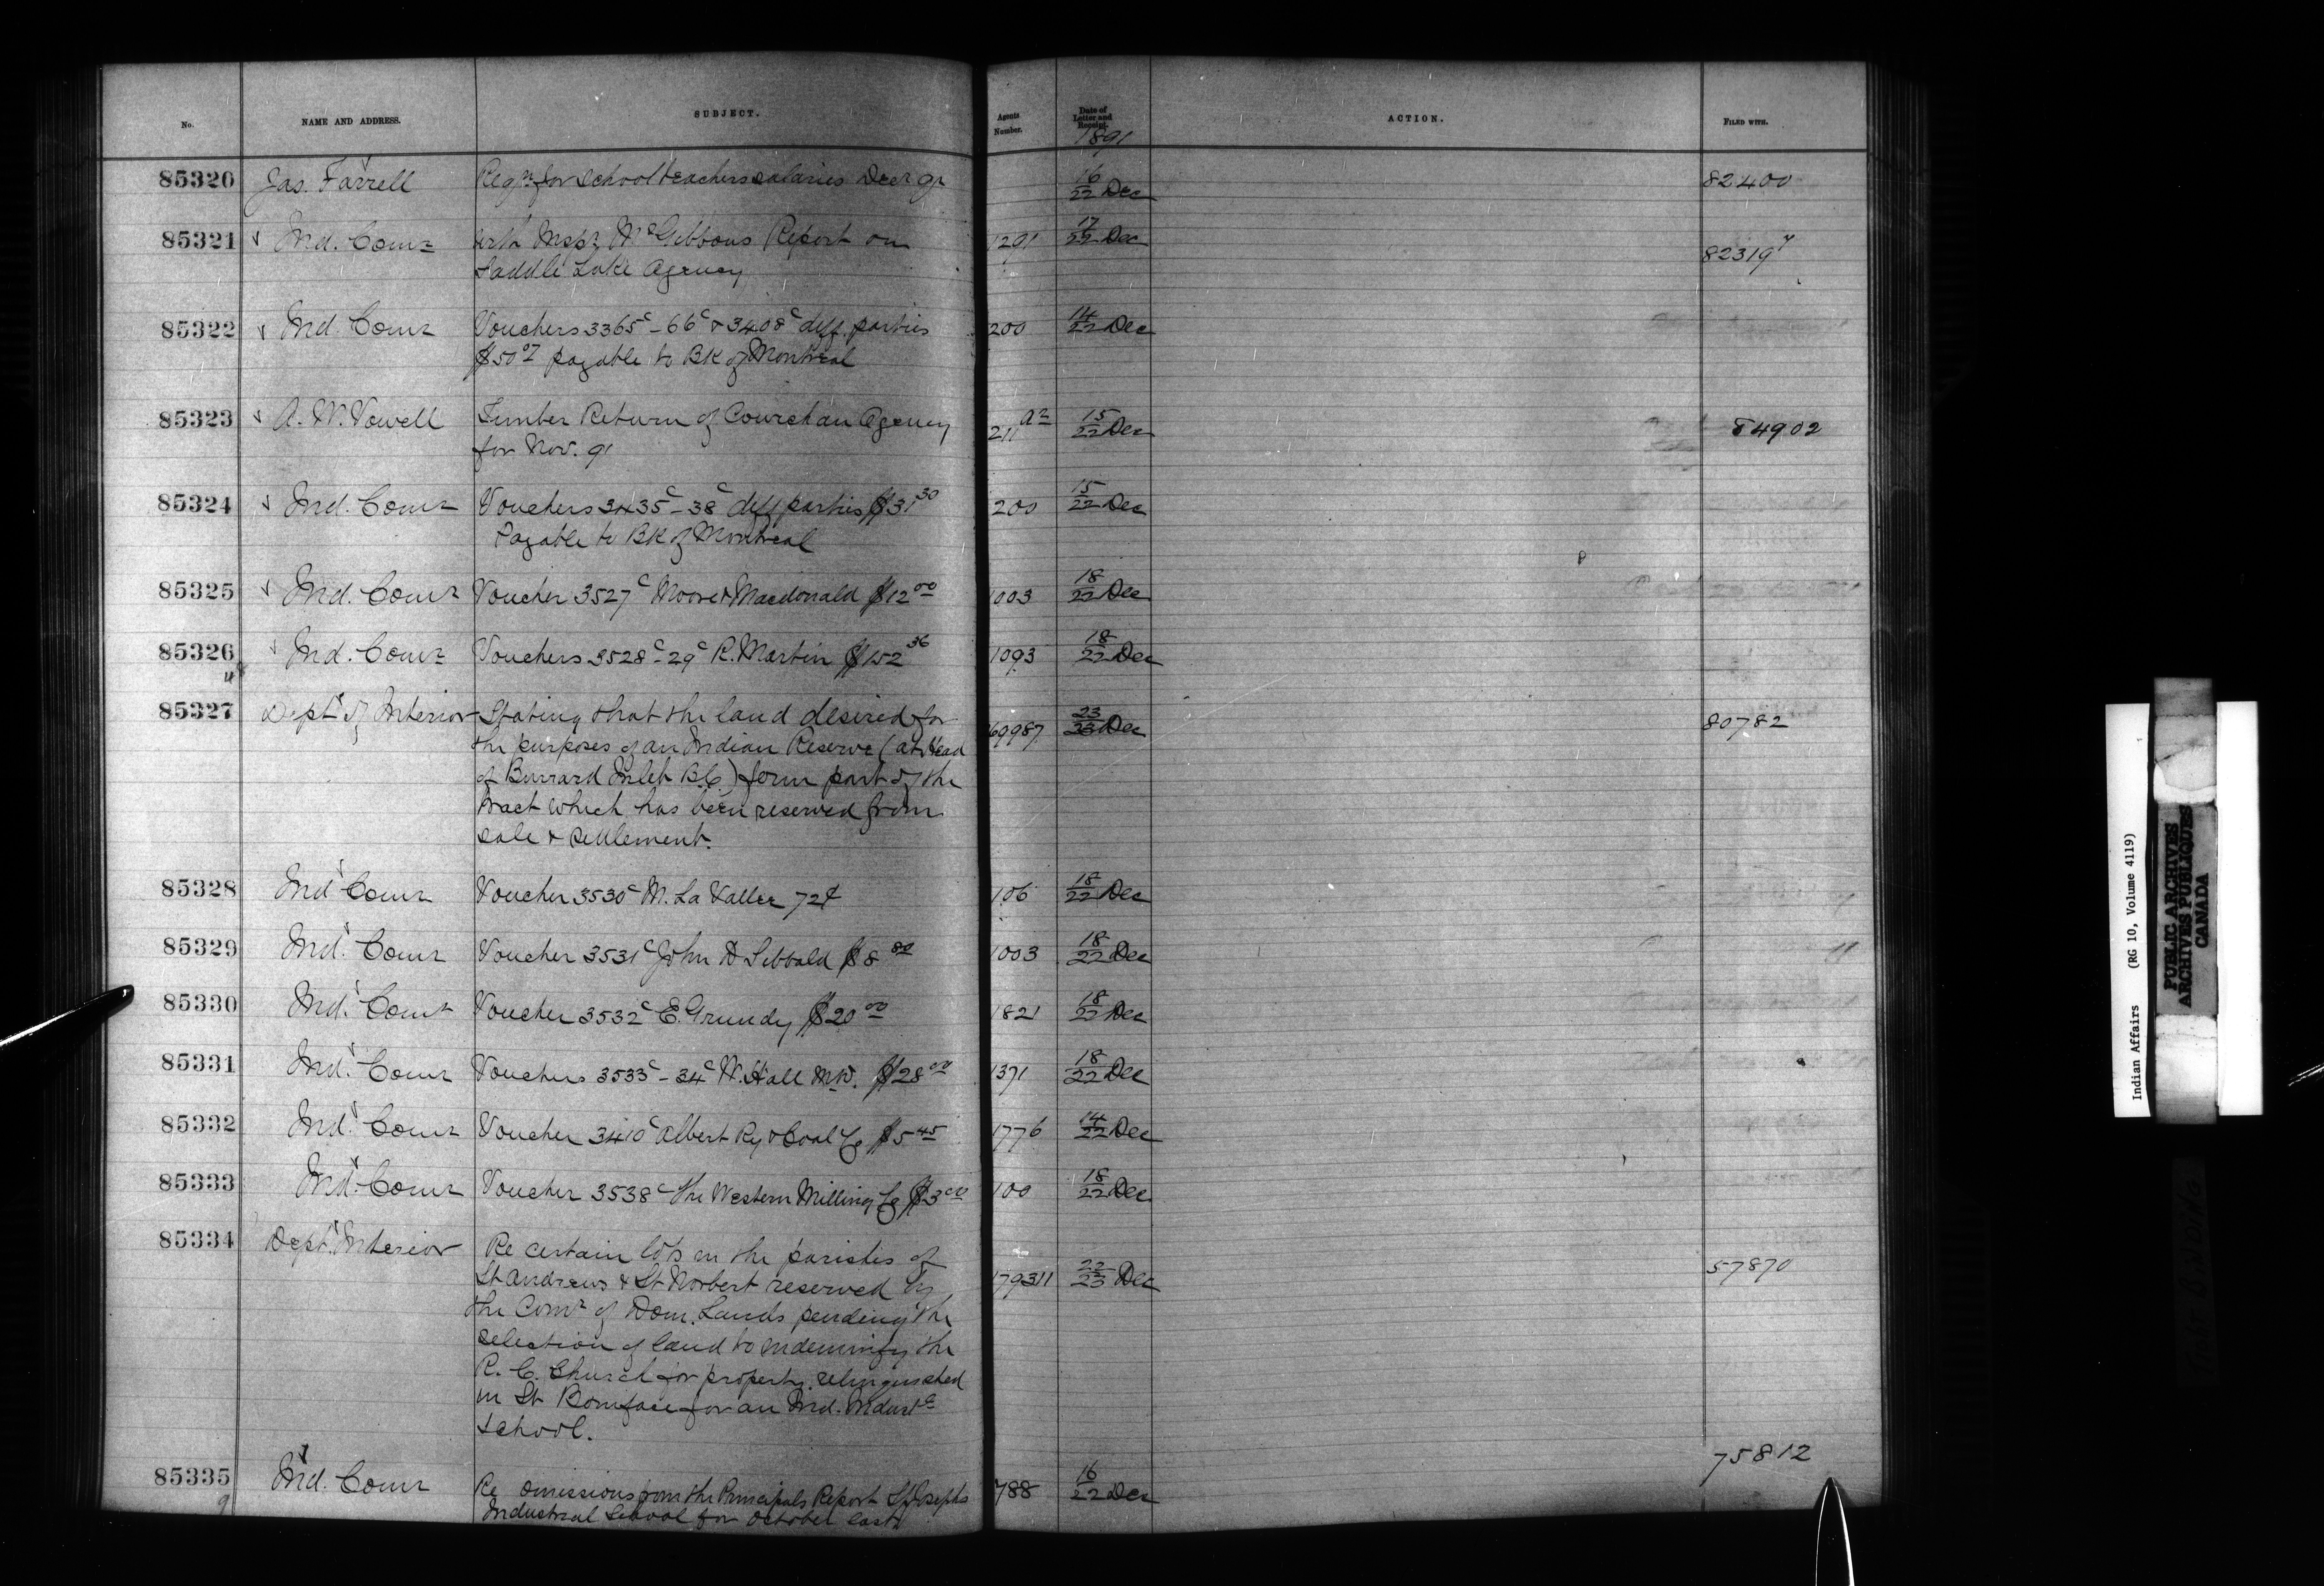 No. NAME AND ADDRESS. SUBJECT. Agents Number. Date of Letter and Receipt. ACTION. FILED WITH.
1891
85320 Jas. Farrell Reqn for School teachers salaries Decr qr 16/22 Dec 82400
85321 Ind. Comr with Inspr McGibbons Report on 1291 17/22 Dec 82319
Saddle Lake Agency
85322 Ind. Comr Vouchers 3365c - 66c & 3408c diff. parties 200 14/22 Dec
$50 07 payable to BK of Montreal
85323 A. W. Vowell Timber Return of Cowichan Agency 211 a2 15/22 Dec 84902
for Nov. 91
85324 Ind. Comr Vouchers 3435c - 38c diff parties $31 30 200 15/22 Dec
Payable to BK of Montreal
85325 Ind. Comr Voucher 3527c Moore & Macdonald $12 00 1003 18/22 Dec
85326 Ind. Comr Vouchers 3528c - 29c R. Martin $152 36 1093 18/22 Dec
85327 Dept of Interior Stating that the land desired for 69987 23/23 Dec 80782
the purposes of an Indian Reserve (at Head
of Burrard Inlet B.C.) form part of the
tract which has been reserved from
sale & settlement.
85328 Ind Comr Voucher 3530c M. La Vallee 72¢ 106 18/22 Dec
85329 Ind. Comr Voucher 3531c John D Sibbald $8 80 1003 18/22 Dec
85330 Ind. Comr Voucher 3532c E. Grundy $20 00 1821 18/22 Dec
85331 Ind. Comr Vouchers 3533c - 34c W. Hall MW. $28 00 1371 18/22 Dec
85332 Ind. Comr Voucher 3410c Albert Ry & Coal Co $5 45 1776 14/22 Dec
85333 Ind. Comr Voucher 3538c The Western Milling Co $3 00 100 18/22 Dec
85334 Dept. Interior Re certain lots in the parishes of 179311 22/23 Dec 57870
St Andrews & St Norbert reserved by
the Comr of Dom. Lands pending the
selection of land to indemnify the
R. C. Church for property relinquished
in St Boniface for an Ind. Indust
School.
85335 Ind. Comr Re omissions from the Principals Report St Josephs 788 16/22 Dec 75812
Industrial School for October last
Indian Affairs (RG 10, Volume 4119)
PUBLIC ARCHIVES
ARCHIVES PUBLIQUES
CANADA